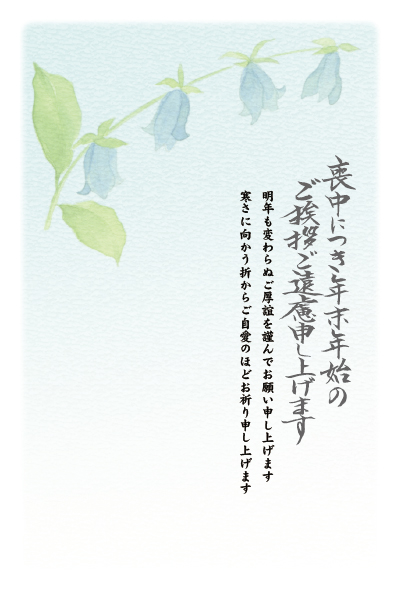 喪中につき年末年始の
ご挨拶ご遠慮申し上げます
明年も変わらぬご厚誼を謹んでお願い申し上げます
寒さに向かう折からご自愛のほどお祈り申し上げます